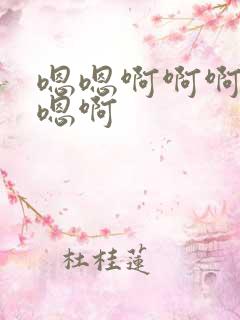 嗯嗯啊啊啊
嗯啊
杜桂莲